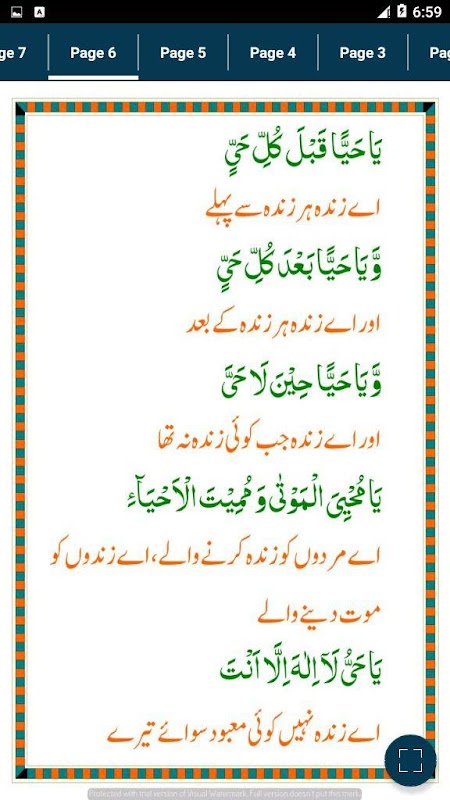 6:59
ge 7 Page 6 Page 5 Page 4 Page 3 Pag
يَا حَيًّا قَبْلَ كُلِّ حَيٍّ
اے زندہ ہر زندہ سے پہلے
وَّ يَا حَيًّا بَعْدَ كُلِّ حَيٍّ
اور اے زندہ ہر زندہ کے بعد
وَّ يَا حَيًّا حِيْنَ لَا حَيَّ
اور اے زندہ جب کوئی زندہ نہ تھا
يَا مُحْيِىَ الْمَوْتٰى وَ مُمِيْتَ الْاَحْيَآءِ
اے مردوں کو زندہ کرنے والے، اے زندوں کو
موت دینے والے
يَا حَىُّ لَآ اِلٰهَ اِلَّا اَنْتَ
اے زندہ نہیں کوئی معبود سوائے تیرے
Protected with trial version of Visual Watermark. Full version doesn't put this mark.